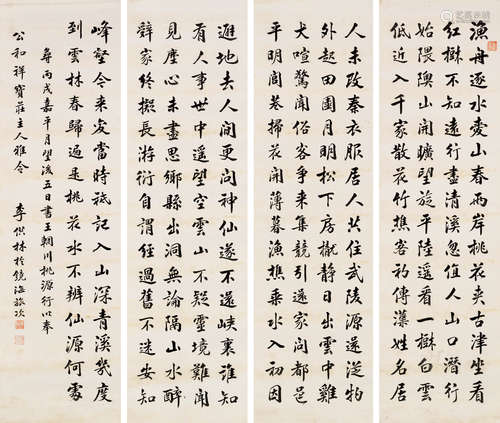 漁舟逐水愛山春兩岸桃花夾古津坐看
紅樹不知遠行盡清溪忽值人山口潛行
始隈隩山開曠望旋平陸遙看一樹白雲
低近入千家散花竹樵客初傳漢姓名居
人未改秦衣服居人共住武陵源還從物
外起田園月明松下房櫳靜日出雲中雞
犬喧驚聞俗客爭來集競引還家問都邑
平明閭巷掃花開薄暮漁樵乘水入初因
避地去人間更問神仙遂不還峽裏誰知
有人事世中遙望空雲山不疑靈境難聞
見塵心未盡思鄉縣出洞無論隔山水
辭家終擬長游衍自謂經過舊不迷安知
峰壑今來變當時祗記入山深青溪幾度
到雲林春歸遍是桃花水不辨仙源何處
尋 丙戌嘉平月望後五日書王輞川桃源行以奉
公和祥寶莊主人雅令
李供林於鏡海旅次